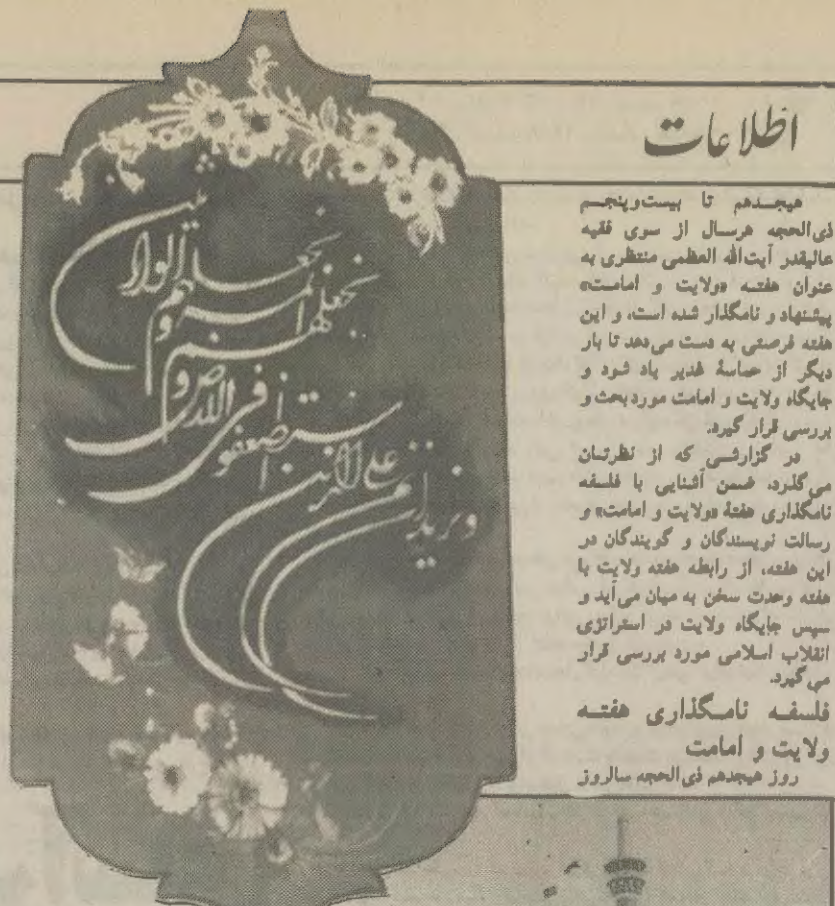 اطلاعات
هیجدهم تا بیست‌وپنجم
ذی‌الحجه هرسال از سوی فقیه
عالیقدر آیت‌الله العظمی منتظری به
عنوان هفته «ولایت و امامت»
پیشنهاد و نامگذار شده است، و این
هفته فرصتی به دست می‌دهد تا بار
دیگر از حماسهٔ غدیر یاد شود و
جایگاه ولایت و امامت مورد بحث و
بررسی قرار گیرد.
در گزارشی که از نظرتان
می‌گذرد، ضمن آشنایی با فلسفه
نامگذاری هفتهٔ «ولایت و امامت» و
رسالت نویسندگان و گویندگان در
این هفته، از رابطه هفته ولایت با
هفته وحدت سخن به میان می‌آید و
سپس جایگاه ولایت در استراتژی
انقلاب اسلامی مورد بررسی قرار
می‌گیرد.
فلسفه نامگذاری هفته
ولایت و امامت
روز هیجدهم ذی‌الحجه سالروز
ونریدان نمن علی الذین
استضعفوا فی الارض و
نجعلهم ائمة و
نجعلهم الوارثین